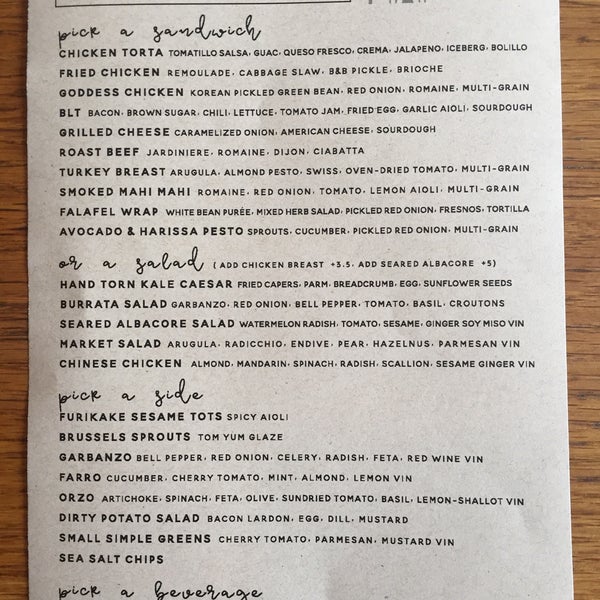 pick a sandwich
CHICKEN TORTA TOMATILLO SALSA, GUAC, QUESO FRESCO, CREMA, JALAPENO, ICEBERG, BOLILLO
FRIED CHICKEN REMOULADE, CABBAGE SLAW, B&B PICKLE, BRIOCHE
GODDESS CHICKEN KOREAN PICKLED GREEN BEAN, RED ONION, ROMAINE, MULTI-GRAIN
BLT BACON, BROWN SUGAR, CHILI, LETTUCE, TOMATO JAM, FRIED EGG, GARLIC AIOLI, SOURDOUGH
GRILLED CHEESE CARAMELIZED ONION, AMERICAN CHEESE, SOURDOUGH
ROAST BEEF JARDINIERE, ROMAINE, DIJON, CIABATTA
TURKEY BREAST ARUGULA, ALMOND PESTO, SWISS, OVEN-DRIED TOMATO, MULTI-GRAIN
SMOKED MAHI MAHI ROMAINE, RED ONION, TOMATO, LEMON AIOLI, MULTI-GRAIN
FALAFEL WRAP WHITE BEAN PURÉE, MIXED HERB SALAD, PICKLED RED ONION, FRESNOS, TORTILLA
AVOCADO & HARISSA PESTO SPROUTS, CUCUMBER, PICKLED RED ONION, MULTI-GRAIN
or a salad (ADD CHICKEN BREAST +3.5, ADD SEARED ALBACORE +5)
HAND TORN KALE CAESAR FRIED CAPERS, PARM, BREADCRUMB, EGG, SUNFLOWER SEEDS
BURRATA SALAD GARBANZO, RED ONION, BELL PEPPER, TOMATO, BASIL, CROUTONS
SEARED ALBACORE SALAD WATERMELON RADISH, TOMATO, SESAME, GINGER SOY MISO VIN
MARKET SALAD ARUGULA, RADICCHIO, ENDIVE, PEAR, HAZELNUS, PARMESAN VIN
CHINESE CHICKEN ALMOND, MANDARIN, SPINACH, RADISH, SCALLION, SESAME GINGER VIN
pick a side
FURIKAKE SESAME TOTS SPICY AIOLI
BRUSSELS SPROUTS TOM YUM GLAZE
GARBANZO BELL PEPPER, RED ONION, CELERY, RADISH, FETA, RED WINE VIN
FARRO CUCUMBER, CHERRY TOMATO, MINT, ALMOND, LEMON VIN
ORZO ARTICHOKE, SPINACH, FETA, OLIVE, SUNDRIED TOMATO, BASIL, LEMON-SHALLOT VIN
DIRTY POTATO SALAD BACON LARDON, EGG, DILL, MUSTARD
SMALL SIMPLE GREENS CHERRY TOMATO, PARMESAN, MUSTARD VIN
SEA SALT CHIPS
pick a beverage